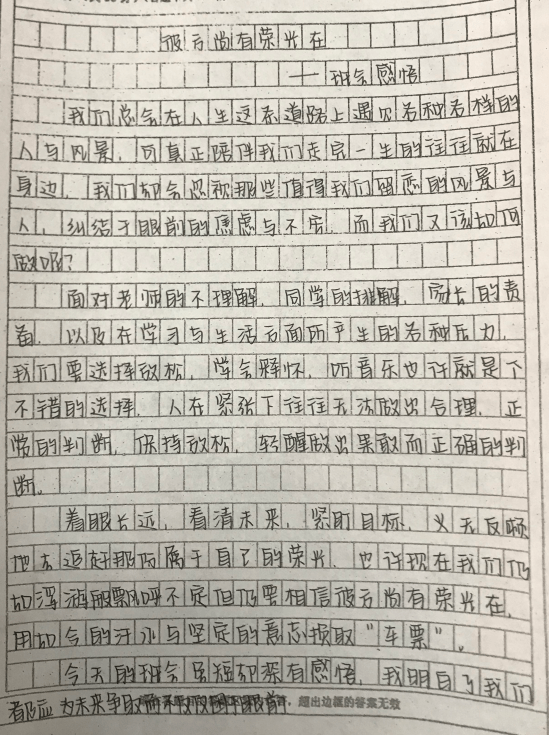 彼方尚有荣光在
——班会感悟
我们总会在人生这条道路上遇见各种各样的
人与风景，可真正陪伴我们走完一生的往往就在
身边，我们却会忽视那些值得我们留恋的风景与
人，纠结于眼前的焦虑与不安，而我们又该如何
做呢？
面对老师的不理解，同学的排解，家长的责
备，以及在学习与生活方面所产生的各种压力，
我们要选择放松，学会释怀，听音乐也许就是个
不错的选择，人在紧张下往往无法做出合理、正
常的判断，保持放松，轻醒做出果敢而正确的判
断。
着眼长远，看清未来，紧盯目标，义无反顾
地去追赶那份属于自己的荣光，也许现在我们仍
如浑浊般飘呼不定但仍要相信彼方尚有荣光在，
用如今的汗水与坚定的意志换取“车票”。
今天的班会虽短却深有感悟，我明白了我们
都应为未来争取而不仅仅困于眼前
超出边框的答案无效